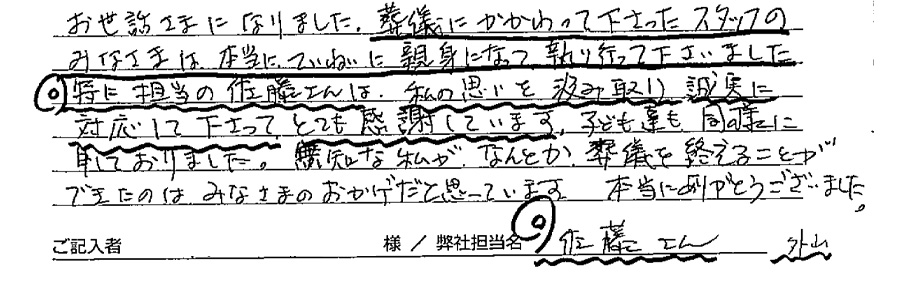 お世話さまになりました。葬儀にかかわって下さったスタッフの
みなさまは、本当にていねいに親身になって執り行って下さいました
特に担当の佐藤さんは、私の思いを汲み取り誠実に
対応して下さって、とても感謝しています。子ども達も同様に
申しておりました。無知な私が、なんとか、葬儀を終えることが
できたのはみなさまのおかげだと思っています 本当にありがとうございました。
ご記入者 様 / 弊社担当名 佐藤さん 外山